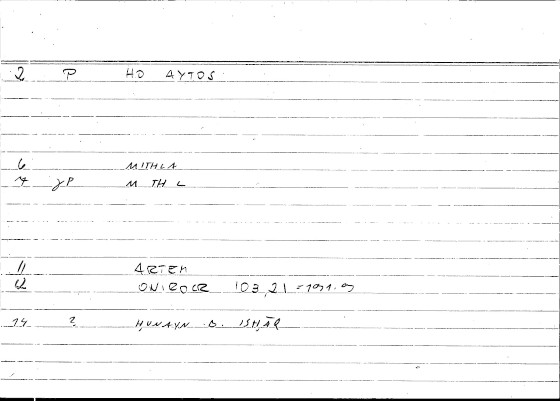 2 P HO AYTOS
6 MITHLA
7 γP M TH L
11 ARTEM
12 ONIROCR 103,21 =
14 2 ḤUNAYN B. ISḤĀQ